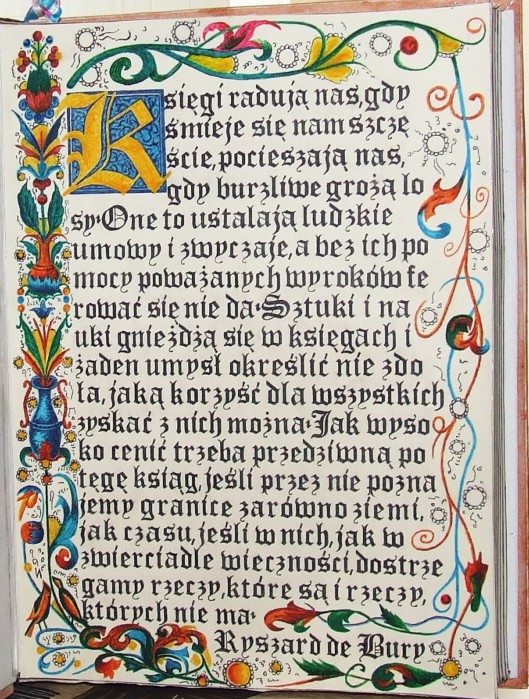 Księgi radują nas, gdy
śmieje się nam szczę
ście, pocieszają nas,
gdy burzliwe grożą lo
sy·One to ustalają ludzkie
umowy i zwyczaje, a bez ich po
mocy poważanych wyroków fe
rować się nie da·Sztuki i na
uki gnieżdżą się w księgach i
żaden umysł określić nie zdo
ła, jaką korzyść dla wszystkich
zyskać z nich można·Jak wyso
ko cenić trzeba przedziwną po
tęgę ksiąg, jeśli przez nie pozna
jemy granice zarówno ziemi,
jak czasu, jeśli w nich, jak w
zwierciadle wieczności, dostrze
gamy rzeczy, które są i rzeczy,
których nie ma·
Ryszard de Bury